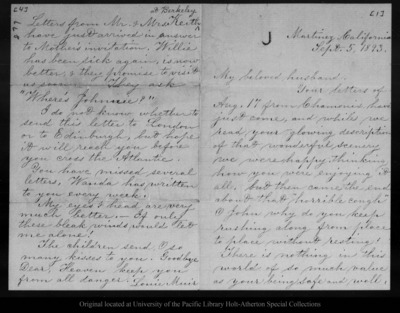 643
D Berkeley
Letters from Mr. & Mrs Keith
have just arrived in answer
to Mother's invitation. Willie
has been sick again, is now
better, & they promise to visit
us soon. They ask
"Where's Johnnie?"
I do not know whether to
send this letter to London
or to Edinburgh, but hope
it will reach you before
you cross the Atlantic.
You have missed several
letters, Wanda has written
to you every week.
My eyes & head are very
much better — If only
these bleak winds would let
me alone!
The children send O so
many kisses to you. Goodbye
Dear, Heaven keep you
from all danger. Louie Muir
643
J
Martinez California
Sept. 5, 1893.
My beloved husband.
Your letters of
Aug. 17 from Chamonix have
just come, and while we
read your glowing description
of that wonderful scenery
we were happy thinking
how you were enjoying it
all, but then came the end
about that horrible cough.
O John why do you keep
rushing along from place
to place without resting!
There is nothing in this
world of so much value
as your being safe and well,
Original located at University of the Pacific Library Holt-Atherton Special Collections